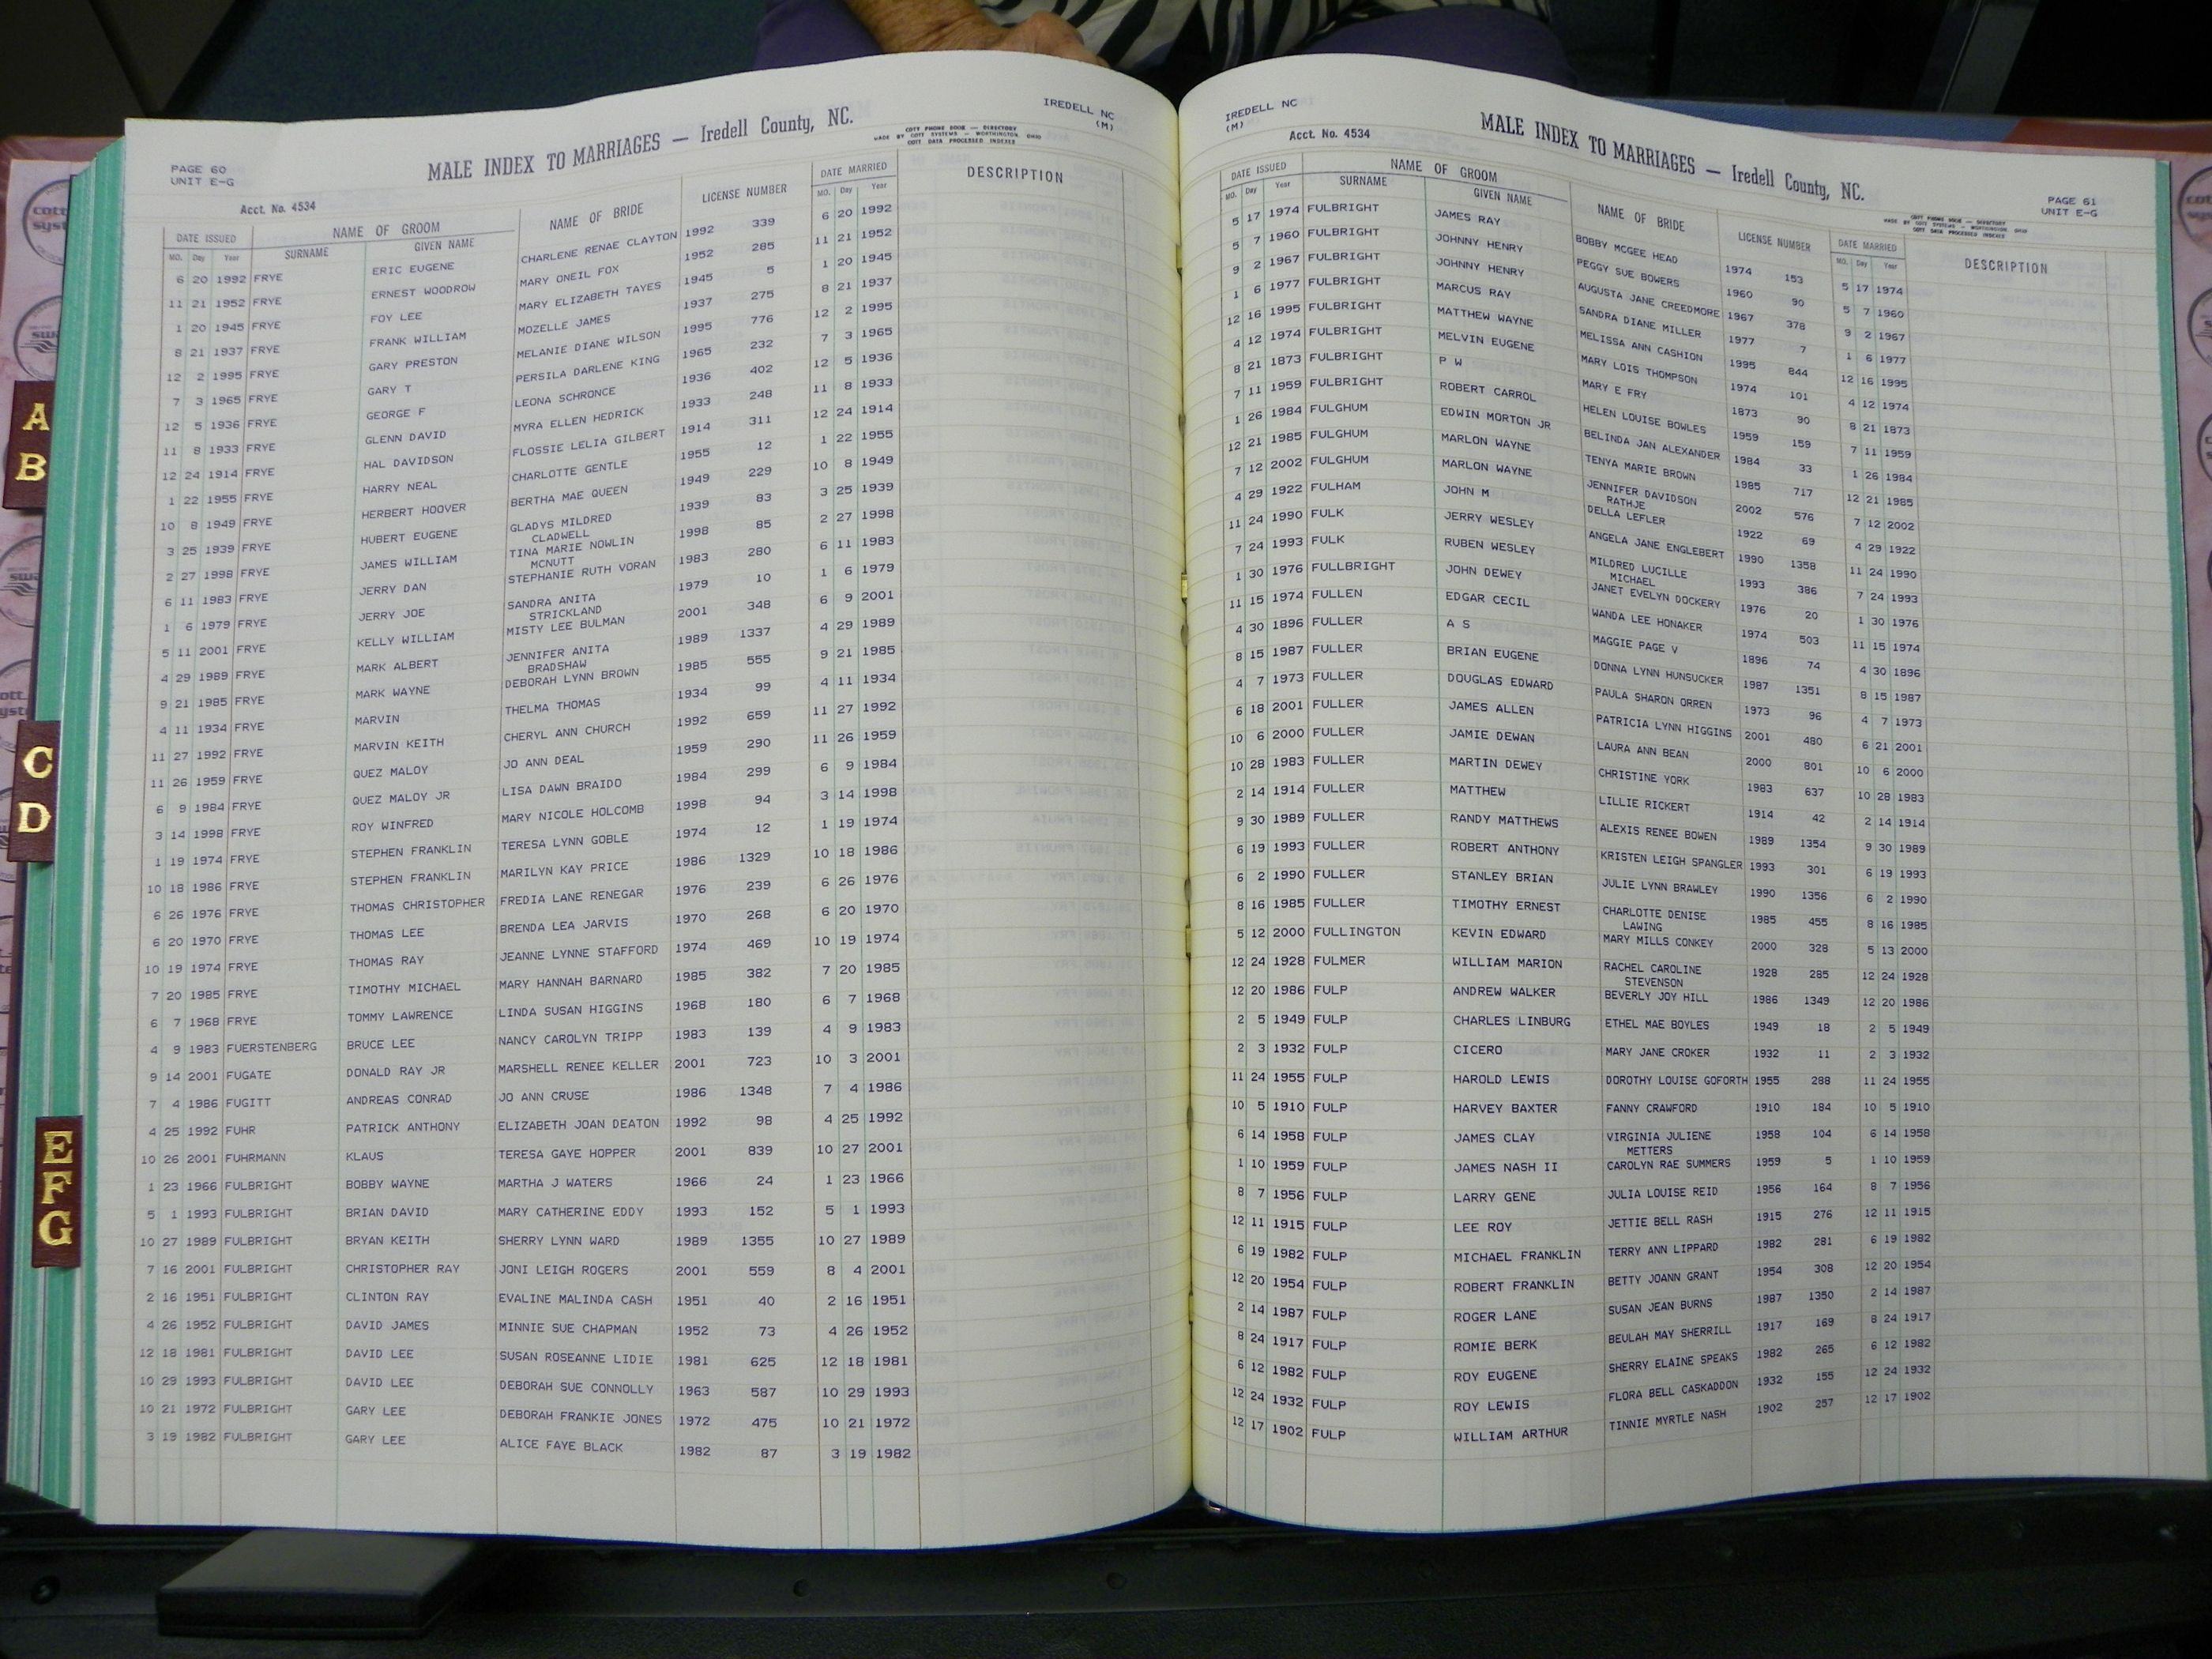 PAGE 60
UNIT E-G
MALE INDEX TO MARRIAGES — Iredell County, NC.
COTT PHONE BOOK — DIRECTORY
MADE BY COTT SYSTEMS — WORTHINGTON, OHIO
COTT DATA PROCESSED INDEXES
IREDELL NC
(M)
Acct. No. 4534
DATE ISSUED NAME OF GROOM NAME OF BRIDE LICENSE NUMBER DATE MARRIED DESCRIPTION
MO. Day Year SURNAME GIVEN NAME MO. Day Year
6 20 1992 FRYE ERIC EUGENE CHARLENE RENAE CLAYTON 1992 339 6 20 1992
11 21 1952 FRYE ERNEST WOODROW MARY ONEIL FOX 1952 285 11 21 1952
1 20 1945 FRYE FOY LEE MARY ELIZABETH TAYES 1945 5 1 20 1945
8 21 1937 FRYE FRANK WILLIAM MOZELLE JAMES 1937 275 8 21 1937
12 2 1995 FRYE GARY PRESTON MELANIE DIANE WILSON 1995 776 12 2 1995
7 3 1965 FRYE GARY T PERSILA DARLENE KING 1965 232 7 3 1965
12 5 1936 FRYE GEORGE F LEONA SCHRONCE 1936 402 12 5 1936
11 8 1933 FRYE GLENN DAVID MYRA ELLEN HEDRICK 1933 248 11 8 1933
12 24 1914 FRYE HAL DAVIDSON FLOSSIE LELIA GILBERT 1914 311 12 24 1914
1 22 1955 FRYE HARRY NEAL CHARLOTTE GENTLE 1955 12 1 22 1955
10 8 1949 FRYE HERBERT HOOVER BERTHA MAE QUEEN 1949 229 10 8 1949
3 25 1939 FRYE HUBERT EUGENE GLADYS MILDRED 1939 83 3 25 1939
CLADWELL
2 27 1998 FRYE JAMES WILLIAM TINA MARIE NOWLIN 1998 85 2 27 1998
MCNUTT
6 11 1983 FRYE JERRY DAN STEPHANIE RUTH VORAN 1983 280 6 11 1983
1 6 1979 FRYE JERRY JOE SANDRA ANITA 1979 10 1 6 1979
STRICKLAND
5 11 2001 FRYE KELLY WILLIAM MISTY LEE BULMAN 2001 348 6 9 2001
4 29 1989 FRYE MARK ALBERT JENNIFER ANITA 1989 1337 4 29 1989
BRADSHAW
9 21 1985 FRYE MARK WAYNE DEBORAH LYNN BROWN 1985 555 9 21 1985
4 11 1934 FRYE MARVIN THELMA THOMAS 1934 99 4 11 1934
11 27 1992 FRYE MARVIN KEITH CHERYL ANN CHURCH 1992 659 11 27 1992
11 26 1959 FRYE QUEZ MALOY JO ANN DEAL 1959 290 11 26 1959
6 9 1984 FRYE QUEZ MALOY JR LISA DAWN BRAIDO 1984 299 6 9 1984
3 14 1998 FRYE ROY WINFRED MARY NICOLE HOLCOMB 1998 94 3 14 1998
1 19 1974 FRYE STEPHEN FRANKLIN TERESA LYNN GOBLE 1974 12 1 19 1974
10 18 1986 FRYE STEPHEN FRANKLIN MARILYN KAY PRICE 1986 1329 10 18 1986
6 26 1976 FRYE THOMAS CHRISTOPHER FREDIA LANE RENEGAR 1976 239 6 26 1976
6 20 1970 FRYE THOMAS LEE BRENDA LEA JARVIS 1970 268 6 20 1970
10 19 1974 FRYE THOMAS RAY JEANNE LYNNE STAFFORD 1974 469 10 19 1974
7 20 1985 FRYE TIMOTHY MICHAEL MARY HANNAH BARNARD 1985 382 7 20 1985
6 7 1968 FRYE TOMMY LAWRENCE LINDA SUSAN HIGGINS 1968 180 6 7 1968
4 9 1983 FUERSTENBERG BRUCE LEE NANCY CAROLYN TRIPP 1983 139 4 9 1983
9 14 2001 FUGATE DONALD RAY JR MARSHELL RENEE KELLER 2001 723 10 3 2001
7 4 1986 FUGITT ANDREAS CONRAD JO ANN CRUSE 1986 1348 7 4 1986
4 25 1992 FUHR PATRICK ANTHONY ELIZABETH JOAN DEATON 1992 98 4 25 1992
10 26 2001 FUHRMANN KLAUS TERESA GAYE HOPPER 2001 839 10 27 2001
1 23 1966 FULBRIGHT BOBBY WAYNE MARTHA J WATERS 1966 24 1 23 1966
5 1 1993 FULBRIGHT BRIAN DAVID MARY CATHERINE EDDY 1993 152 5 1 1993
10 27 1989 FULBRIGHT BRYAN KEITH SHERRY LYNN WARD 1989 1355 10 27 1989
7 16 2001 FULBRIGHT CHRISTOPHER RAY JONI LEIGH ROGERS 2001 559 8 4 2001
2 16 1951 FULBRIGHT CLINTON RAY EVALINE MALINDA CASH 1951 40 2 16 1951
4 26 1952 FULBRIGHT DAVID JAMES MINNIE SUE CHAPMAN 1952 73 4 26 1952
12 18 1981 FULBRIGHT DAVID LEE SUSAN ROSEANNE LIDIE 1981 625 12 18 1981
10 29 1993 FULBRIGHT DAVID LEE DEBORAH SUE CONNOLLY 1963 587 10 29 1993
10 21 1972 FULBRIGHT GARY LEE DEBORAH FRANKIE JONES 1972 475 10 21 1972
3 19 1982 FULBRIGHT GARY LEE ALICE FAYE BLACK 1982 87 3 19 1982
IREDELL NC
(M)
Acct. No. 4534
MALE INDEX TO MARRIAGES — Iredell County, NC.
COTT PHONE BOOK — DIRECTORY
MADE BY COTT SYSTEMS — WORTHINGTON, OHIO
COTT DATA PROCESSED INDEXES
PAGE 61
UNIT E-G
DATE ISSUED NAME OF GROOM NAME OF BRIDE LICENSE NUMBER DATE MARRIED DESCRIPTION
MO. Day Year SURNAME GIVEN NAME MO. Day Year
5 17 1974 FULBRIGHT JAMES RAY BOBBY MCGEE HEAD 1974 153 5 17 1974
5 7 1960 FULBRIGHT JOHNNY HENRY PEGGY SUE BOWERS 1960 90 5 7 1960
9 2 1967 FULBRIGHT JOHNNY HENRY AUGUSTA JANE CREEDMORE 1967 378 9 2 1967
1 6 1977 FULBRIGHT MARCUS RAY SANDRA DIANE MILLER 1977 7 1 6 1977
12 16 1995 FULBRIGHT MATTHEW WAYNE MELISSA ANN CASHION 1995 844 12 16 1995
4 12 1974 FULBRIGHT MELVIN EUGENE MARY LOIS THOMPSON 1974 101 4 12 1974
8 21 1873 FULBRIGHT P W MARY E FRY 1873 90 8 21 1873
7 11 1959 FULBRIGHT ROBERT CARROL HELEN LOUISE BOWLES 1959 159 7 11 1959
1 26 1984 FULGHUM EDWIN MORTON JR BELINDA JAN ALEXANDER 1984 33 1 26 1984
12 21 1985 FULGHUM MARLON WAYNE TENYA MARIE BROWN 1985 717 12 21 1985
7 12 2002 FULGHUM MARLON WAYNE JENNIFER DAVIDSON 2002 576 7 12 2002
RATHJE
4 29 1922 FULHAM JOHN M DELLA LEFLER 1922 69 4 29 1922
11 24 1990 FULK JERRY WESLEY ANGELA JANE ENGLEBERT 1990 1358 11 24 1990
7 24 1993 FULK RUBEN WESLEY MILDRED LUCILLE 1993 386 7 24 1993
MICHAEL
1 30 1976 FULLBRIGHT JOHN DEWEY JANET EVELYN DOCKERY 1976 20 1 30 1976
11 15 1974 FULLEN EDGAR CECIL WANDA LEE HONAKER 1974 503 11 15 1974
4 30 1896 FULLER A S MAGGIE PAGE V 1896 74 4 30 1896
8 15 1987 FULLER BRIAN EUGENE DONNA LYNN HUNSUCKER 1987 1351 8 15 1987
4 7 1973 FULLER DOUGLAS EDWARD PAULA SHARON ORREN 1973 96 4 7 1973
6 18 2001 FULLER JAMES ALLEN PATRICIA LYNN HIGGINS 2001 480 6 21 2001
10 6 2000 FULLER JAMIE DEWAN LAURA ANN BEAN 2000 801 10 6 2000
10 28 1983 FULLER MARTIN DEWEY CHRISTINE YORK 1983 637 10 28 1983
2 14 1914 FULLER MATTHEW LILLIE RICKERT 1914 42 2 14 1914
9 30 1989 FULLER RANDY MATTHEWS ALEXIS RENEE BOWEN 1989 1354 9 30 1989
6 19 1993 FULLER ROBERT ANTHONY KRISTEN LEIGH SPANGLER 1993 301 6 19 1993
6 2 1990 FULLER STANLEY BRIAN JULIE LYNN BRAWLEY 1990 1356 6 2 1990
8 16 1985 FULLER TIMOTHY ERNEST CHARLOTTE DENISE 1985 455 8 16 1985
LAWING
5 12 2000 FULLINGTON KEVIN EDWARD MARY MILLS CONKEY 2000 328 5 13 2000
12 24 1928 FULMER WILLIAM MARION RACHEL CAROLINE 1928 285 12 24 1928
STEVENSON
12 20 1986 FULP ANDREW WALKER BEVERLY JOY HILL 1986 1349 12 20 1986
2 5 1949 FULP CHARLES LINBURG ETHEL MAE BOYLES 1949 18 2 5 1949
2 3 1932 FULP CICERO MARY JANE CROKER 1932 11 2 3 1932
11 24 1955 FULP HAROLD LEWIS DOROTHY LOUISE GOFORTH 1955 288 11 24 1955
10 5 1910 FULP HARVEY BAXTER FANNY CRAWFORD 1910 184 10 5 1910
6 14 1958 FULP JAMES CLAY VIRGINIA JULIENE 1958 104 6 14 1958
METTERS
1 10 1959 FULP JAMES NASH II CAROLYN RAE SUMMERS 1959 5 1 10 1959
8 7 1956 FULP LARRY GENE JULIA LOUISE REID 1956 164 8 7 1956
12 11 1915 FULP LEE ROY JETTIE BELL RASH 1915 276 12 11 1915
6 19 1982 FULP MICHAEL FRANKLIN TERRY ANN LIPPARD 1982 281 6 19 1982
12 20 1954 FULP ROBERT FRANKLIN BETTY JOANN GRANT 1954 308 12 20 1954
2 14 1987 FULP ROGER LANE SUSAN JEAN BURNS 1987 1350 2 14 1987
8 24 1917 FULP ROMIE BERK BEULAH MAY SHERRILL 1917 169 8 24 1917
6 12 1982 FULP ROY EUGENE SHERRY ELAINE SPEAKS 1982 265 6 12 1982
12 24 1932 FULP ROY LEWIS FLORA BELL CASKADDON 1932 155 12 24 1932
12 17 1902 FULP WILLIAM ARTHUR TINNIE MYRTLE NASH 1902 257 12 17 1902
A
B
C
D
E
F
G